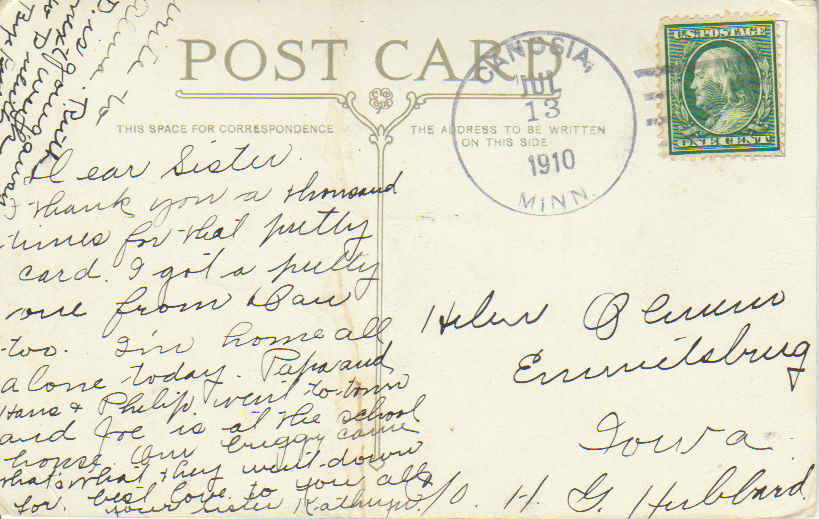 POST CARD
THIS SPACE FOR CORRESPONDENCE
THE ADDRESS TO BE WRITTEN
ON THIS SIDE
CANOSIA,
JUL
13
1910
MINN.
U.S. POSTAGE
ONE CENT
Dear Sister.
I thank you a thousand
times for that pretty
card. I got a pretty
one from Dan
too. I'm home all
alone today. Papa and
Hans & Philip went to town
and Joe is at the school
house. Our buggy came
that's what they went down
for. best love to you all
your sister Kathryn
Helen
Emmitsbrug
Iowa
c/o. H. G. Hubbard.
write to